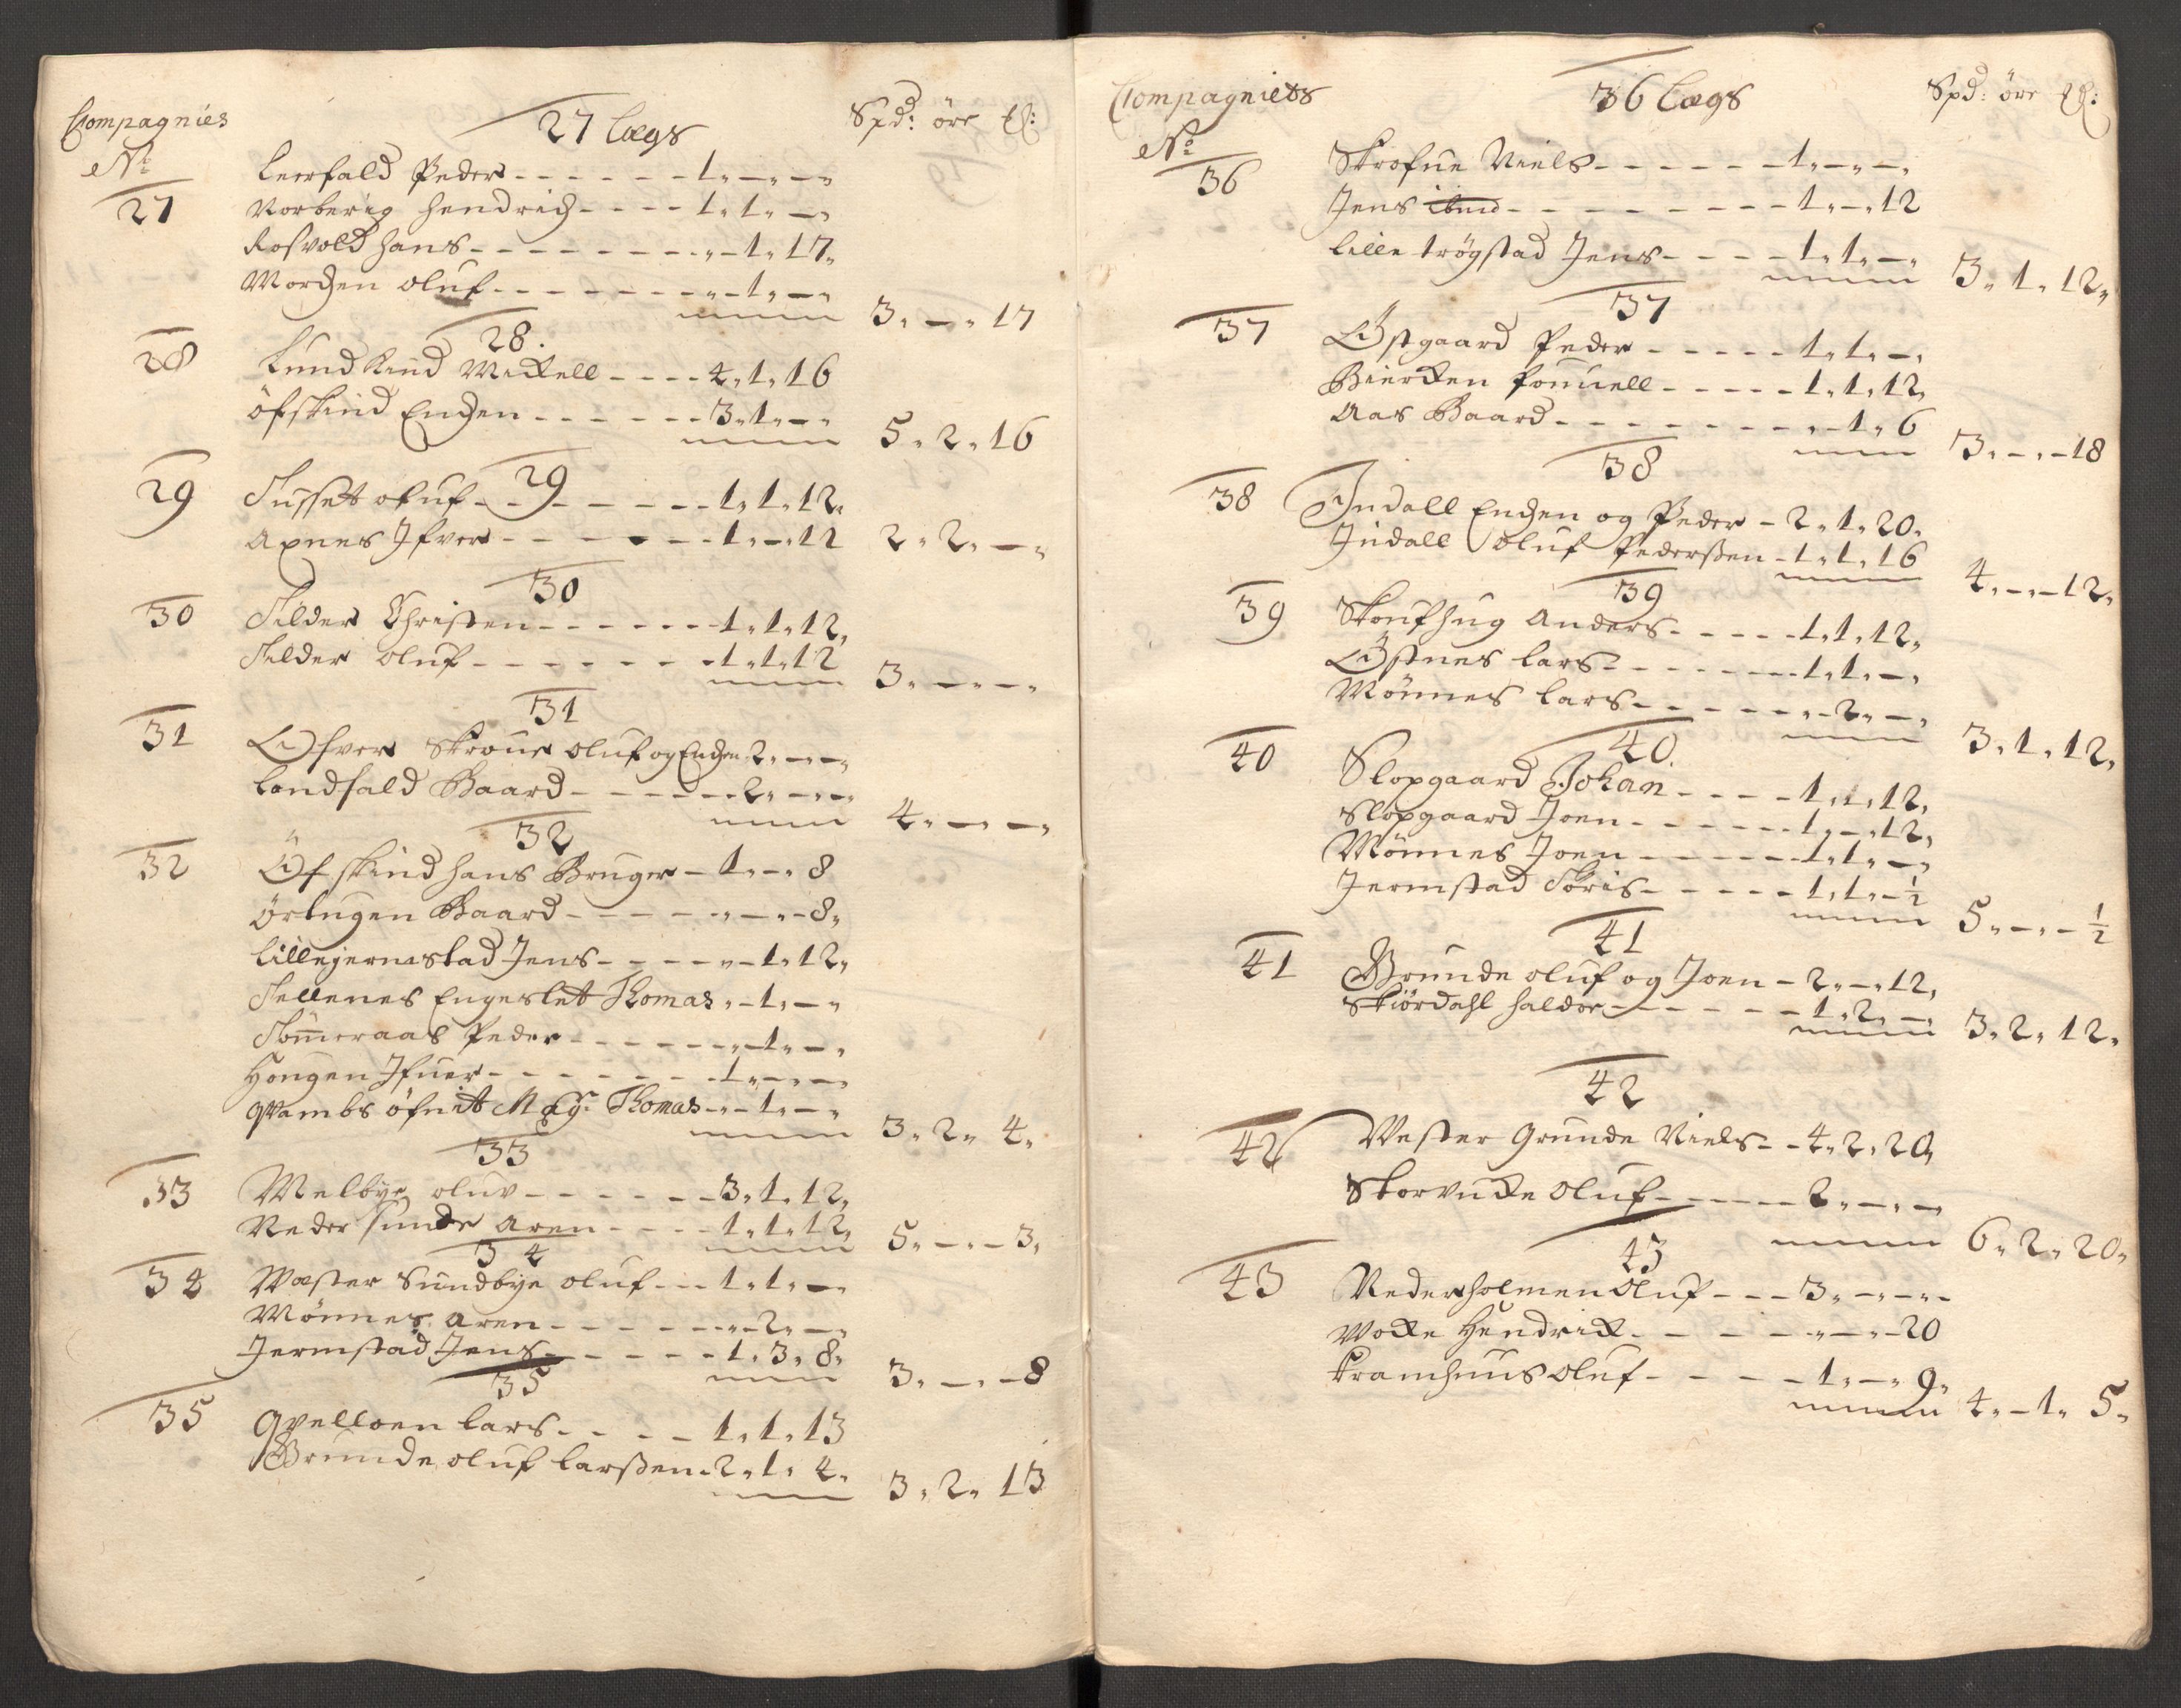 Compagnies 27 Lægs Spd: öre ℔:
No
27 Leerfald Peder - - - - - - 1 „ — „ — „
Vorberig Hendrich - - - - 1 „ 1 „ — „
Rosvold Hans - - - - - - - „ — 1 „ 17 „
Mordzen Oluf - - - - - - - „ — 1 „ — „ 3 „ — „ 17
28.
28 Lund Kind Mickell - - - - 4 „ 1 „ 16
Öfskind Endzen - - - - - - 3 „ 1 „ — „ 5 „ 2 „ 16
29
29 Tusset Oluf - - - - - - - 1 „ 1 „ 12 „
Axnes Ifver - - - - - - - 1 „ — „ 12 2 „ 2 „ — „
30
30 Tilder Christen - - - - - - 1 „ 1 „ 12 „
Tilder Oluf - - - - - - - 1 „ 1 „ 12 3 „ — „ — „
31
31 Ofver Skroue Oluf og Endzen 2 „ — „ — „
Landfald Baard - - - - - 2 „ — „ — „ 4 „ — „ — „
32
32 Öfskind Hans Bruger - 1 „ — „ 8
Örtugen Baard - - - - - „ — „ — 8 „
Lillejermstad Jens - - - - „ — 1 „ 12 „
Tellenes Engeslet Thomas „ — 1 „ — „
Tömeraas Peder - - - - - - „ — 1 „ — „
Hougen Ifuer - - - - - - - 1 „ — „ — „
Qvambs öfnit Mag: Thomas - „ — 1 „ — „ 3 „ 2 „ 4 „
33
33 Melbye Oluv - - - - - - 3 „ 1 „ 12 „
Neder Sunde Aren - - - - 1 „ 1 „ 12 „ 5 „ — „ — 3 „
34
34 Wæster Sundbye Oluf - - 1 „ 1 „ —
Mönnes Aren - - - - - - „ — 2 „ — „
Jermstad Jens - - - - - 1 „ 3 „ 8 „ 3 „ — „ — 8
35
35 Qvelloen Lars - - - - 1 „ 1 „ 13
Grunde Oluf Larssen - 2 „ 1 „ 4 „ 3 „ 2 „ 13
Compagniets 36 Lægs Spd: öre ℔:
No
36 Skrofue Niels - - - - - - 1 „ — „ — „
Jens ibid - - - - - - - - - 1 „ — „ 12
Lille Trögstad Jens - - - - 1 „ 1 „ — „ 3 „ 1 „ 12 „
37
37 Östgaard Peder - - - - - 1 „ 1 „ — „
Bierken Pouuell - - - - - 1 „ 1 „ 12 „
Aas Baard - - - - - - - - „ — 1 „ 6 3 „ — „ — 18
38
38 Indall Endzen og Peder - 2 „ 1 „ 20 „
Indall Oluf Pederssen - 1 „ 1 „ 16 4 „ — „ — 12 „
39
39 Skoufhug Anders - - - - - 1 „ 1 „ 12 „
Östnes Lars - - - - - - - 1 „ 1 „ — „
Mönnes Lars - - - - - - - „ — 2 „ — „ 3 „ 1 „ 12 „
40.
40 Slopgaard Johan - - - - 1 „ 1 „ 12 „
Slopgaard Joen - - - - - - 1 „ — „ 12 „
Mönnes Joen - - - - - - 1 „ 1 „ — „
Jermstad Toris - - - - - 1 „ 1 „ — ½ 5 „ — „ — ½
41
41 Grunde Oluf og Joen - 2 „ — „ 12 „
Skiördahl Haldor - - - - - 1 „ 2 „ — „ 3 „ 2 „ 12 „
42
42 Wester Grunde Niels - - 4 „ 2 „ 20 „
Skorvucke Oluf - - - - - 2 „ — „ — 6 „ 2 „ 20 „
43
43 Nederholmen Oluf - - - 3 „ — „ — „
Wocke Hendrick - - - - - „ — „ — 20
Kramhuus Oluf - - - - - 1 „ — „ 9 „ 4 „ — 1 „ 5 „